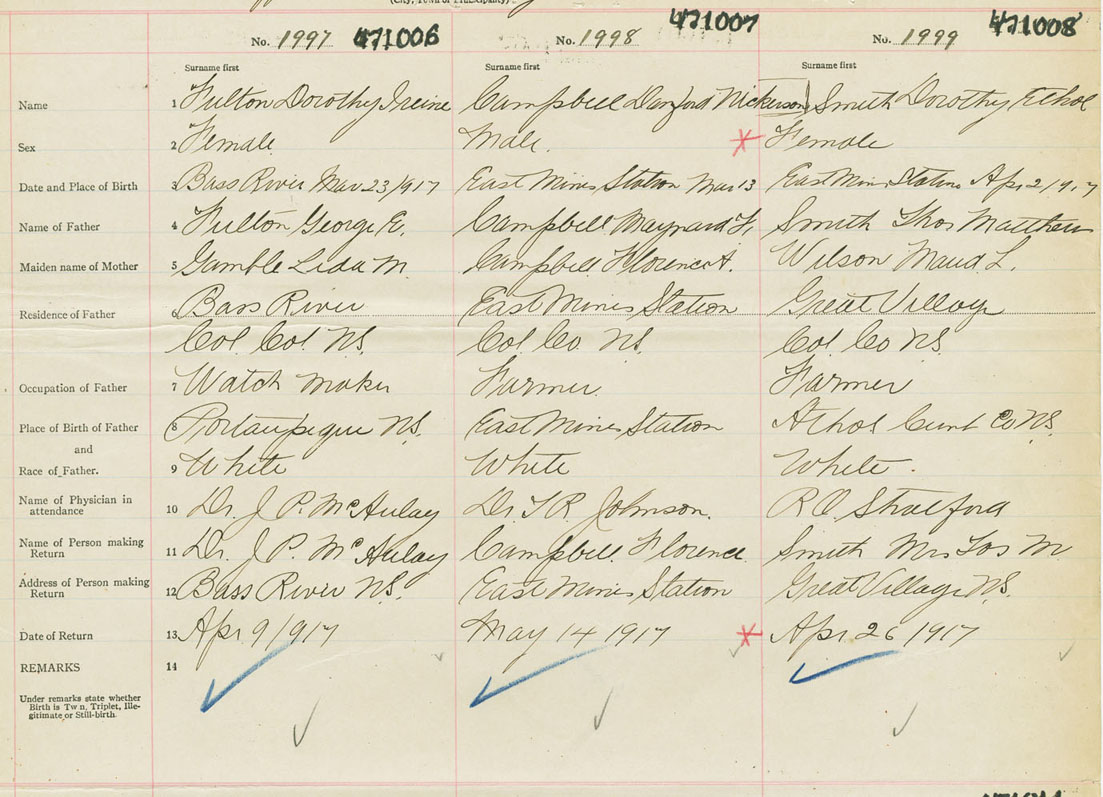 (City, Town or Municipality)
No. 1997 471006 No. 1998 471007 No. 1999 471008
Surname first Surname first Surname first
Name 1 Fulton Dorothy Ireine Campbell Danford Nickerson Smith Dorothy Ethol
Sex 2 Female Male. Female
Date and Place of Birth 3 Bass River Mar 23/917 East Mines Station Mar 13 East Mines Station Apr 2/917
Name of Father 4 Fulton George E. Campbell Maynard F. Smith Thos Matthew
Maiden name of Mother 5 Gamble Lida M. Campbell Florence A. Wilson Maud L.
Residence of Father 6 Bass River East Mines Station Great Village
Col. Col. N.S. Col. Co. N.S. Col. Co N.S.
Occupation of Father 7 Watch Maker Farmer. Farmer
Place of Birth of Father 8 Portaupique N.S. East Mines Station Athol Cumb Co N.S.
and
Race of Father. 9 White White White.
Name of Physician in
attendance 10 Dr. J. P. McAulay Dr. T R. Johnson. R O. Shatford
Name of Person making
Return 11 Dr. J. P. McAulay Campbell Florence Smith Mrs Tos M
Address of Person making
Return 12 Bass River N.S. East Mines Station Great Village N.S.
Date of Return 13 Apr 9/917 May 14 1917 Apr 26 1917
REMARKS 14
Under remarks state whether
Birth is Twin, Triplet, Ille-
gitimate or Still-birth.